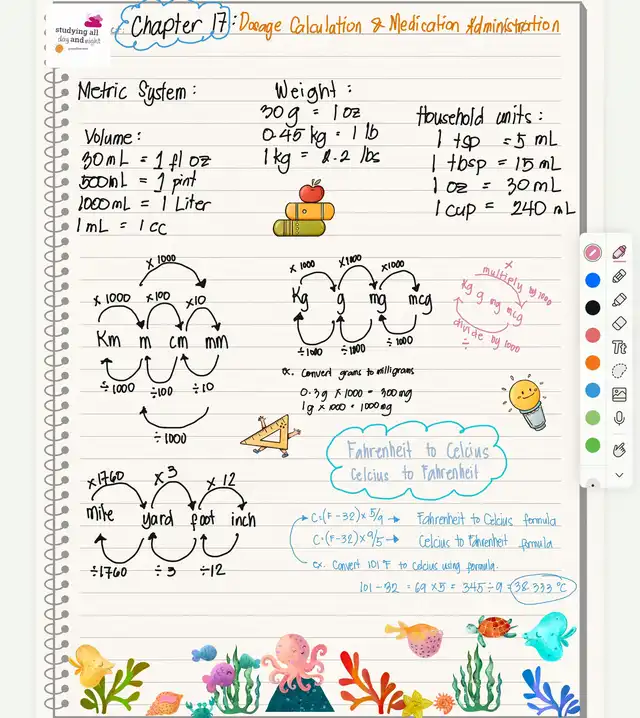 studying all
day and night
Chapter 17: Dosage Calculation & Medication Administration
Metric System:
Volume:
30 mL = 1 fl oz
500mL = 1 pint
1000mL = 1 Liter
1 mL = 1 cc
Weight:
30 g = 1 oz
0.45 kg = 1 lb
1 kg = 2.2 lbs
Household units:
1 tsp = 5 mL
1 tbsp = 15 mL
1 oz = 30 mL
1 cup = 240 mL
x 1000
x 1000 x100 x10
Km m cm mm
÷1000 ÷100 ÷10
÷1000
x 1000 x1000 x1000
Kg g mg mcg
÷1000 ÷1000 ÷1000
x
multiply by 1000
Kg g mg mcg
divide by 1000
÷
ex. Convert grams to milligrams
0.3g x 1000 = 300mg
1g x 1000 = 1000mg
Fahrenheit to Celcius
Celcius to Fahrenheit
x1760 x3 x 12
Mile yard foot inch
÷1760 ÷3 ÷12
C=(F-32)x 5/9 → Fahrenheit to Celcius formula
C=(F-32)x 9/5 → Celcius to Fahrenheit formula
ex. Convert 101 °F to Celcius using formula.
101 - 32 = 69 x5 = 345 ÷ 9 = 38.333 °C